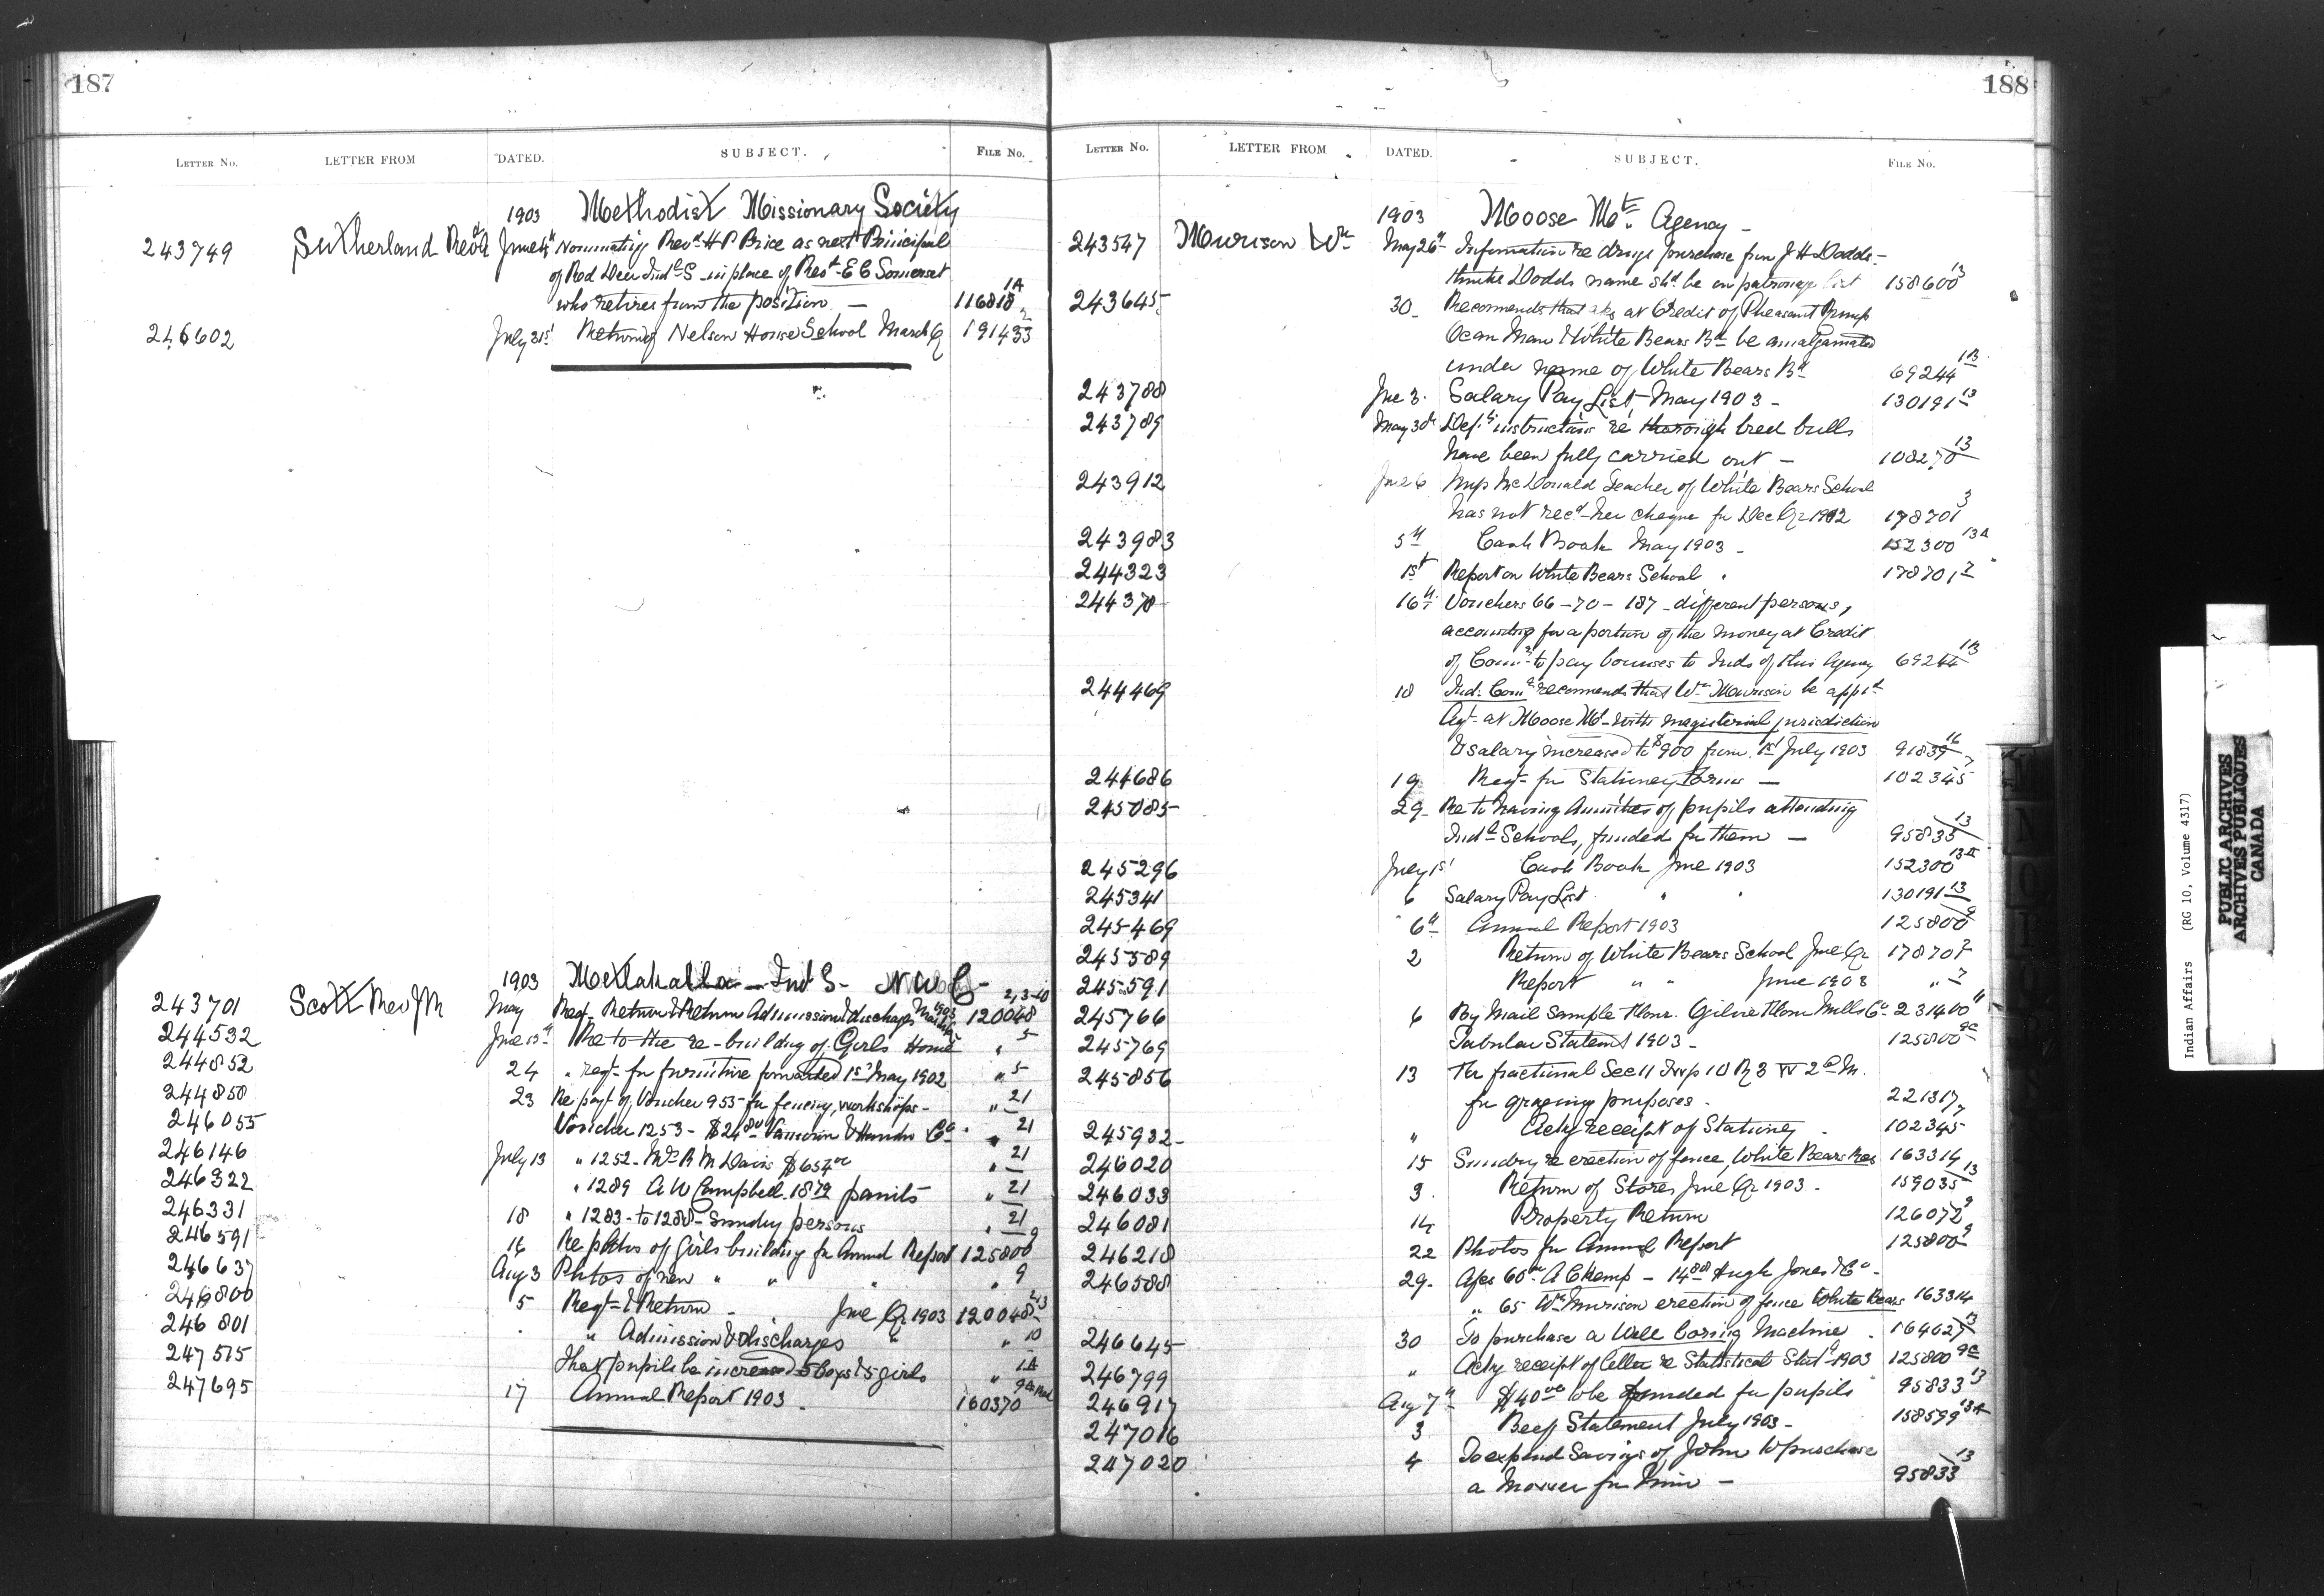 187
LETTER NO. LETTER FROM DATED. SUBJECT. FILE NO.
1903 Methodist Missionary Society
243749 Sutherland Revd A June 4th Nominating Revd H P Price as next Principal
of Red Deer Indl S in place of Revd E C Somerset
who retires from the position — 116818 1A
246602 July 31st Return of Nelson House School March Qr 191433 2
1903 Metlakatla — Ind S — N W C —
243701 Scott Rev J M May Reqt Return & Return Admission & discharges March Qr 1903 120048 2,3-10
244532 June 13th Re to the re-building of Girls Home " 5
244852 24 " reqt for furniture forwarded 1st May 1902 " 5
244850 23 Re payt of Voucher 955 for fencing, workshops — " 21
246055 Voucher 1253 — $24 Co " 21
246146 July 13 " 1252 — R M Davis $654 " 21
246322 " 1289 A W Campbell 18 79 paints " 21
246331 18 " 1283 — to 1288 — Sundry persons " 21
246591 16 Re photos of girls building for Annual Report 125800 9
246637 Aug 3 Photos of new " " " " 9
246800 5 Reqt & Return — June Qr 1903 120048 2,3
246801 " Admission & discharges " " 10
247515 That pupils be increased 5 boys & 5 girls " 1A
247695 17 Annual Report 1903 — 160370
188
LETTER NO. LETTER FROM DATED. SUBJECT. FILE NO.
1903 Moose Mt. Agency —
243547 Murison Wm May 26th Information re drugs purchase from J H Dodds —
thinks Dodds name shd be on patronage list 158600 13
243645 30 Recommends that at Credit of Pheasant Rump
Ocean Man & White Bears Bd be amalgamated
under name of White Bears Bd 69244 13
243788 Jne 3 Salary Pay List May 1903 — 130191 13
243789 May 30th Depts instructions re thorough bred bulls
have been fully carried out — 108270 13
243912 Jne 6 Miss McDonald Teacher of White Bears School
has not recd her cheque for Dec Qr 1902 178701 3
243983 5th Cash Book May 1903 — 152300 13A
244323 1st Report on White Bears School 178701 7
244378 16th Vouchers 66 — 70 — 187 — different persons,
accounting for a portion of the money at Credit
of Comr to pay bonuses to Inds of this Agency 69244 13
244469 18 Ind. Comr recommends that Wm Murison be apptd
Agt at Moose Mt with magisterial jurisdiction
& salary increased to $900 from 1st July 1903 91839 16
244686 19 Reqt for Stationery forms — 102345 7
245085 29 Re to having Annuities of pupils attending
Indl Schools, funded for them — 95833 13
245296 July 1st Cash Book June 1903 152300 13A
245341 6 Salary Pay List " " 130191 13
245469 6th Annual Report 1903 125800 9
245589 2 Return of White Bears School June Qr 178701 2
245591 Report " " June 1903 " 7
245766 6 By Mail Sample flour. Flour Mills Co 231400 11
245769 Tabular Statemt 1903 — 125800 9C
245856 13 fractional Sec 11 Twp 10 R 3 W 2d M.
for grazing purposes — 221317
245932 " Ackg receipt of Stationery 102345 7
246020 15 Sundry re erection of fence, White Bears Res 163314
246033 3 Return of Stores June Qr 1903 — 159035 13
246081 14 Property Return 126072 9
246218 22 Photos for Annual Report 125800 9
246588 29 60 A C Kemp — 14 88 Hugh Jones & Co —
" 65 Wm Murison erection of fence White Bears 163314
246645 30 To purchase a Well boring Machine 164627 13
246799 " Ackg receipt of letter re Statistical Statt 1903 125800 9C
246917 Aug 7th $40 00 to be funded for pupils 95833 13
247016 3 Beef Statement July 1903 — 158599 13A
247020 4 To expend Savings of John W purchase
a Mower for him — 95833 13
Indian Affairs (RG 10, Volume 4317)
PUBLIC ARCHIVES
ARCHIVES PUBLIQUES
CANADA